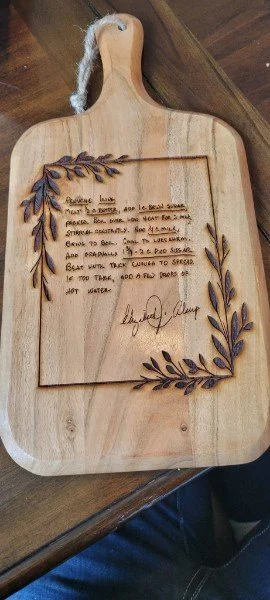 Penuche Icing
Melt ½ c butter, add 1 c brn sugar,
Boil over low heat for 2 min
stirring constantly. Add ¼ c milk,
Bring to boil. Cool to lukewarm.
Add gradually 1¾ - 2 c pwd sugar
Beat until thick enough to spread
if too thick, add a few drops of
hot water.